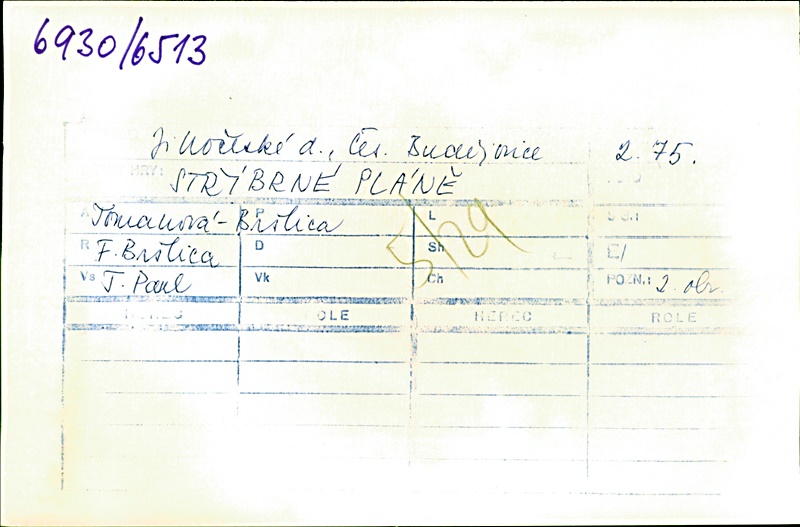 6930/6513
Jihočeské d., Čes. Budějovice 2.75.
HRY:
STŘÍBRNÉ PLÁNĚ
A Tomanová-Bršlica P L
5/29
R F. Bršlica D Sh E/
Vs J. Paul Vk Ch POZN.: 2. obr.
HEREC OLE HEREC ROLE